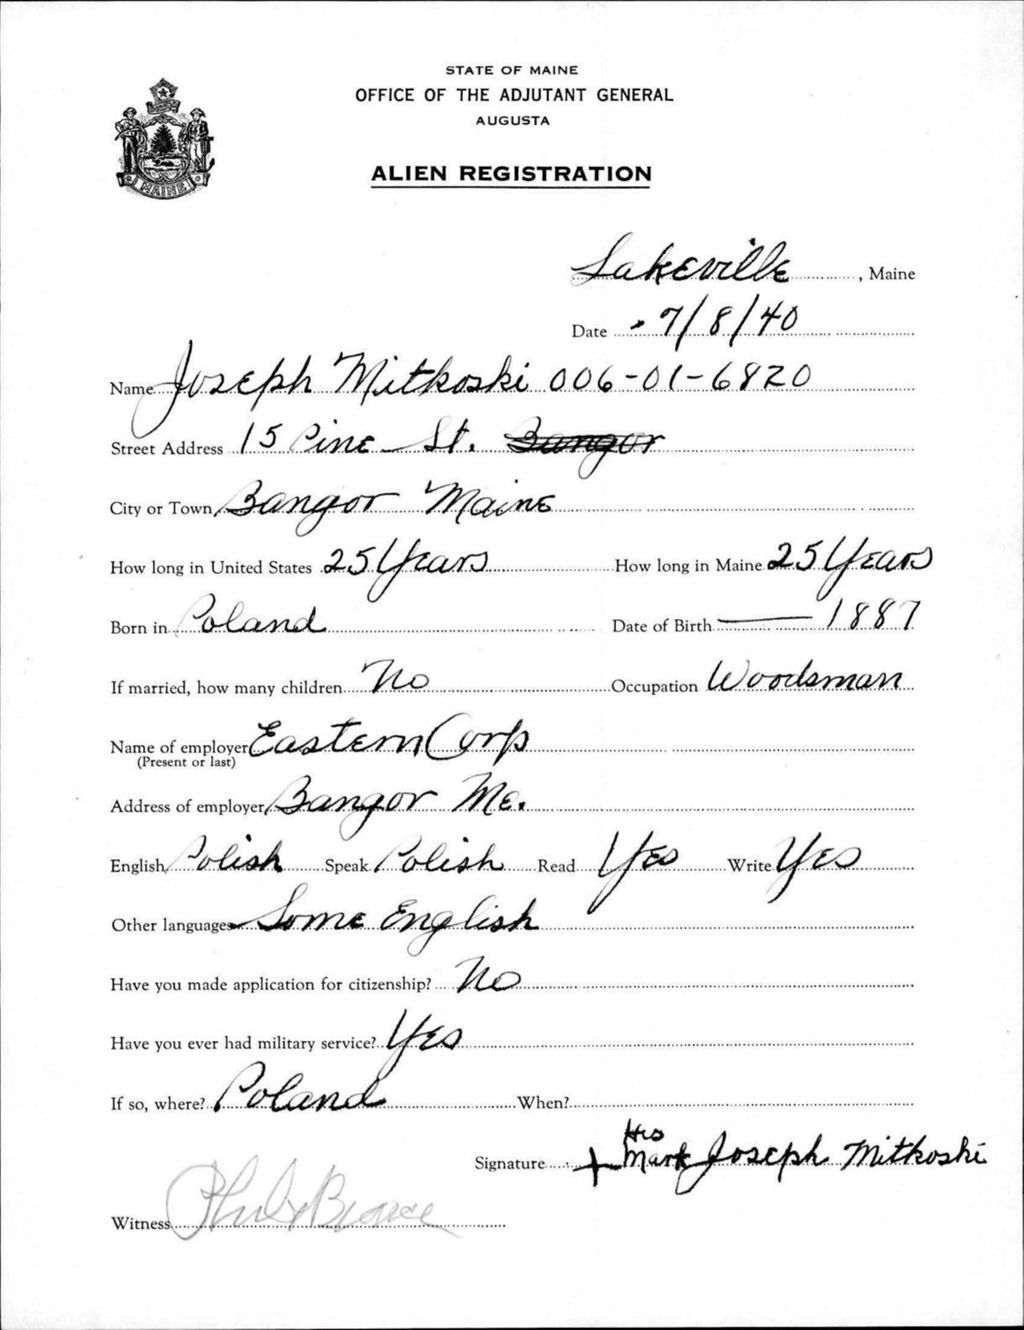 STATE OF MAINE
OFFICE OF THE ADJUTANT GENERAL
AUGUSTA
ALIEN REGISTRATION
MAINE
Lakeville, Maine
Date 7/8/40
Name Joseph Mitkoski 006-01-6820
Street Address 15 Pine St. Bangor
City or Town Bangor Maine
How long in United States 25 Years How long in Maine 25 Years
Born in Poland Date of Birth — 1887
If married, how many children No Occupation Woodsman
Name of employer Eastern Corp
(Present or last)
Address of employer Bangor Me.
English Polish Speak Polish Read Yes Write Yes
Other languages Some English
Have you made application for citizenship? No
Have you ever had military service? Yes
If so, where? Poland When?
His
Signature + Mark Joseph Mitkoski
Witness